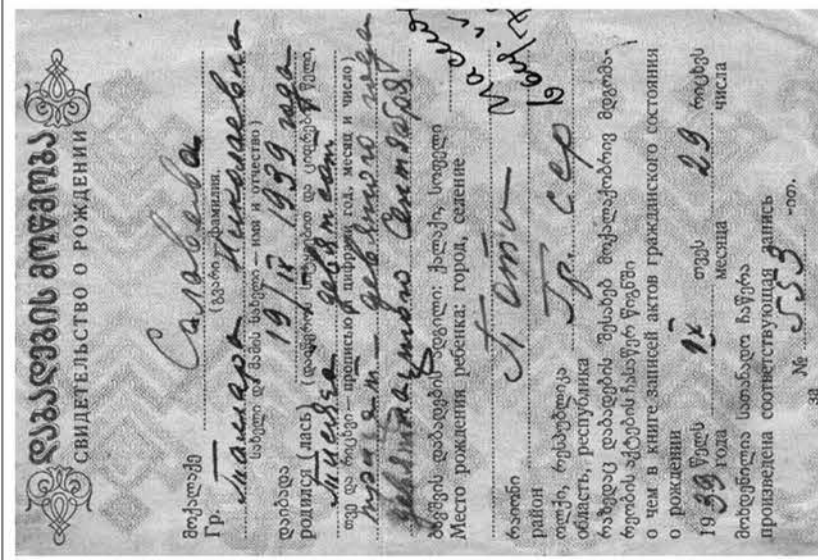 ᲓᲐᲑᲐᲓᲔᲑᲘᲡ ᲛᲝᲬᲛᲝᲑᲐ
СВИДЕТЕЛЬСТВО О РОЖДЕНИИ
მოქალაქე
Гр.
(გვარი — фамилия,
Тамара Николаевна
სახელი და მამის სახელი — имя и отчество)
დაიბადა
19/IX 1939 года
родился (лась) (დაიწეროს სიტყვებით და ციფრებით წელი,
Тысяча девятьсот
თვე და რიცხვი — прописью и цифрами год, месяц и число)
тридцать девятого года
девятнадцатого сентября
ბავშვის დაბადების ადგილი: ქალაქი, სოფელი
Место рождения ребенка: город, селение
Поти
რაიონი
район
ოლქი, რესპუბლიკა
область, республика
Гр. ССР
რაზედაც დაბადების შესახებ მოქალაქობრივ მდგომა-
რეობის აქტების ჩასაწერ წიგნში
о чем в книге записей актов гражданского состояния
о рождении
1939 წელს года IX თვეს месяца 29 რიცხვს числа
მოხდენილია სათანადო ჩაწერა
произведена соответствующая запись
№ 553 -ით.
за